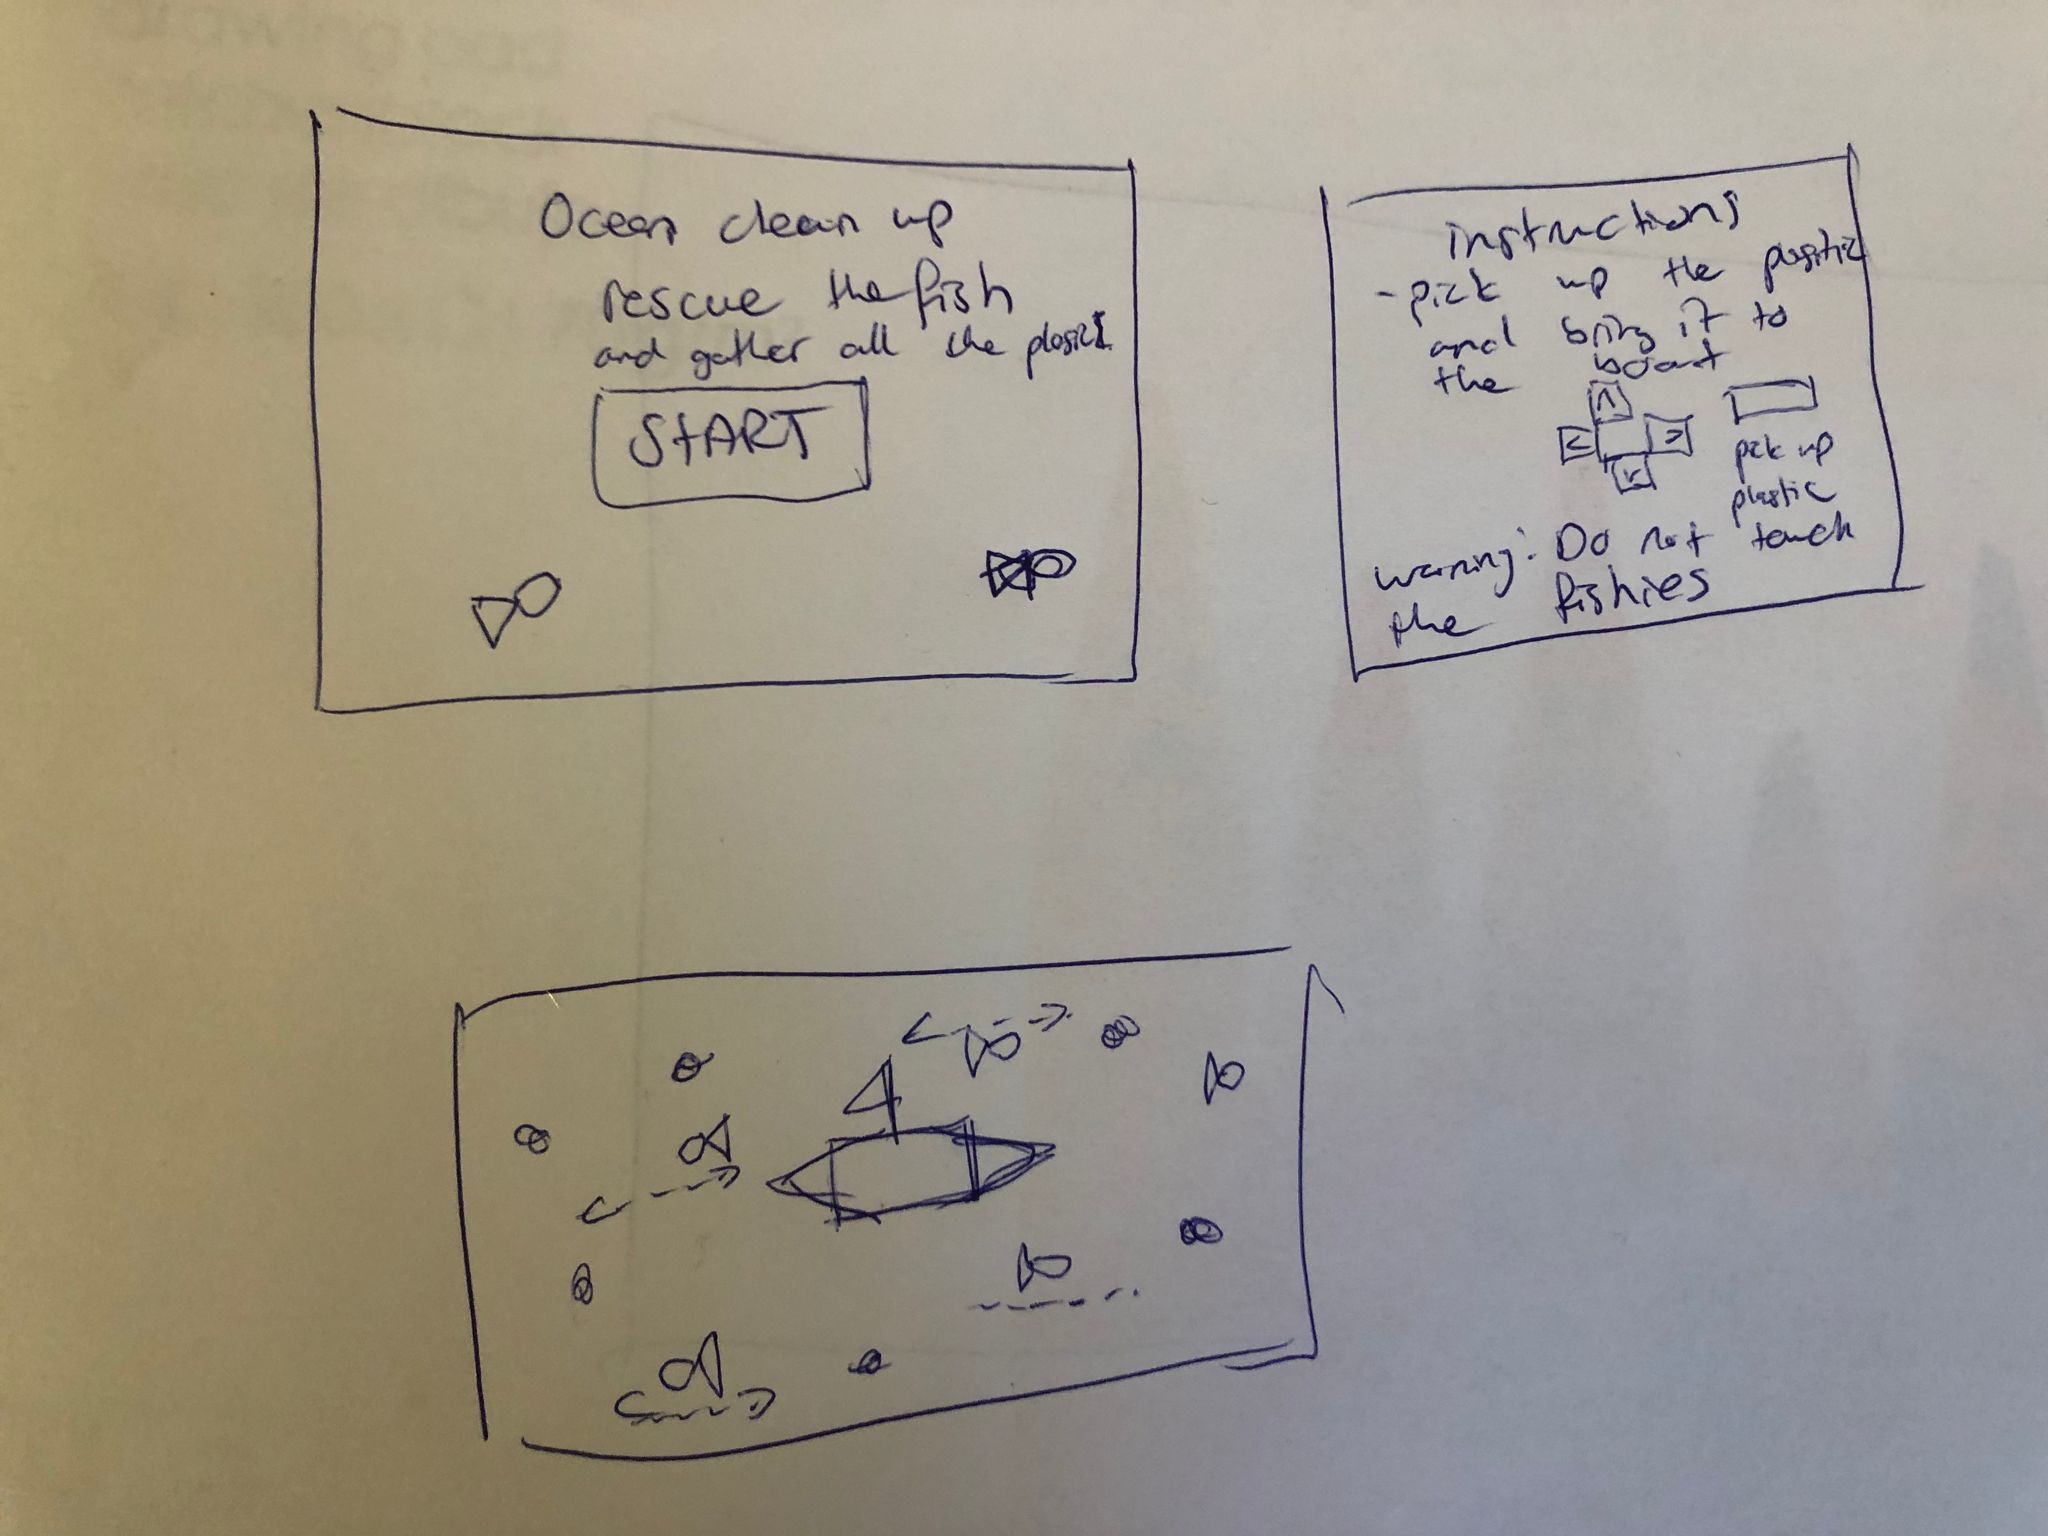 Ocean clean up
rescue the fish
and gather all the plastic
START
instructions
- pick up the plastic
and bring it to
the boart
pick up
plastic
warning: Do not touch
the fishies